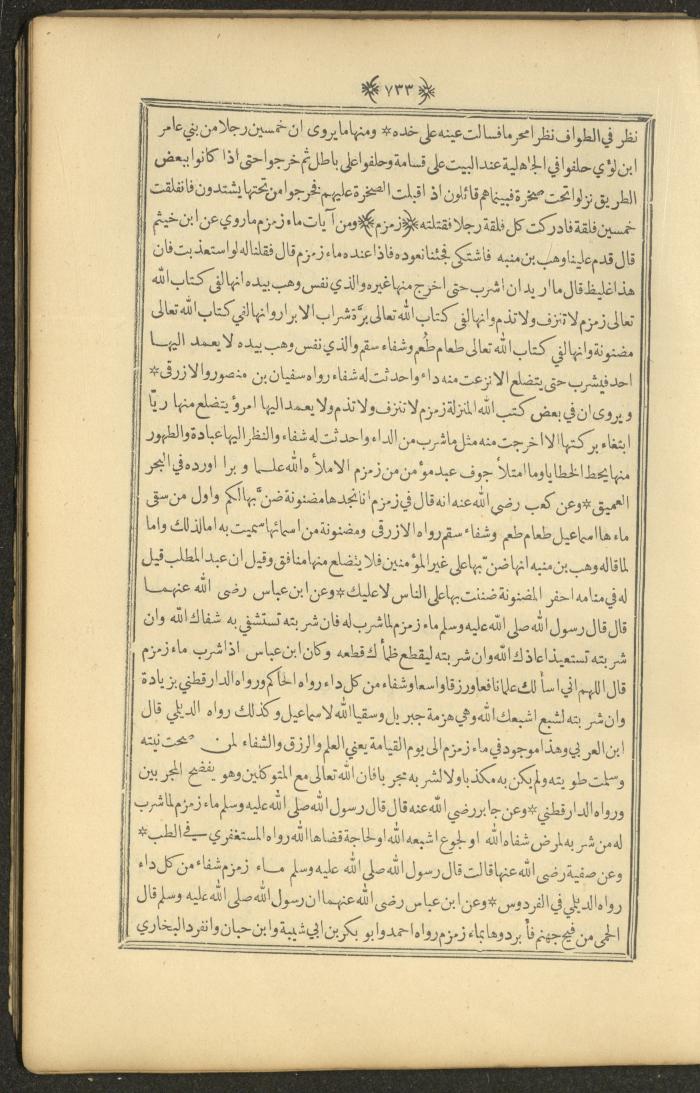 ﴿ ٧٣٣ ﴾
نظر في الطواف نظرا محرما فسالت عينه على خده * ومنها ما يروى ان خمسين رجلا من بني عامر
ابن لؤي حلفوا في الجاهلية عند البيت على قسامة وحلفوا على باطل ثم خرجوا حتى اذا كانوا ببعض
الطريق نزلوا تحت صخرة فبينما هم قائلون اذ اقبلت الصخرة عليهم فخرجوا من تحتها يشتدون فانفلقت
خمسين فلقة فادركت كل فلقة رجلا فقتلته ﴿ زمزم ﴾ ومن آيات ماء زمزم ماروي عن ابن خيثم
قال قدم علينا وهب بن منبه فاشتكى فجئنا نعوده فاذا عنده ماء زمزم قال فقلنا له لو استعذبت فان
هذا غليظ قال ما اريد ان اشرب حتى اخرج منها غيره والذي نفس وهب بيده انها لفى كتاب الله
تعالى زمزم لا تنزف ولا تذم وانها لفى كتاب الله تعالى برَّة شراب الابرار وانها لفي كتاب الله تعالى
مضنونة وانها لفي كتاب الله تعالى طعام طُعم وشفاء سقم والذي نفس وهب بيده لا يعمد اليها
احد فيشرب حتى يتضلع الا نزعت منه داء واحدثت له شفاء رواه سفيان بن منصور والازرقى *
ويروى ان في بعض كتب الله المنزلة زمزم لا تنزف ولا تذم ولا يعمد اليها امرؤ يتضلع منها ريّا
ابتغاء بركتها الا اخرجت منه مثل ما شرب من الداء واحدثت له شفاء والنظر اليها عبادة والطهور
منها يحط الخطايا وما امتلأ جوف عبد مؤمن من زمزم الا ملأه الله علما و برا اورده في البحر
العميق * وعن كعب رضي الله عنه انه قال في زمزم انا نجدها مضنونة ضنَّ بها لكم واول من سقى
ماءها اسماعيل طعام طعم وشفاء سقم رواه الازرقى ومضنونة من اسمائها سميت به اما لذلك واما
لما قاله وهب بن منبه انها ضنّ بها على غير المؤمنين فلا يتضلع منها منافق وقيل ان عبد المطلب قيل
له في منامه احفر المضنونة ضننت بها على الناس لا عليك * وعن ابن عباس رضى الله عنهما
قال قال رسول الله صلى الله عليه وسلم ماء زمزم لما شرب له فان شربته تستشفي به شفاك الله وان
شربته تستعيذ اعاذك الله وان شربته ليقطع ظمأك قطعه وكان ابن عباس اذا شرب ماء زمزم
قال اللهم اني اسألك علما نافعا ورزقا واسعا وشفاء من كل داء رواه الحاكم ورواه الدارقطني بزيادة
وان شربته لشبع اشبعك الله وهي هزمة جبريل وسقيا الله لاسماعيل وكذلك رواه الديلي قال
ابن العربي وهذا موجود في ماء زمزم الى يوم القيامة يعني العلم والرزق والشفاء لمن صحت نيته
وسلمت طويته ولم يكن به مكذبا ولا لشربه مجربا فان الله تعالى مع المتوكلين وهو يفضح المجربين
ورواه الدارقطني * وعن جابر رضي الله عنه قال قال رسول الله صلى الله عليه وسلم ماء زمزم لما شرب
له من شربه لمرض شفاه الله او لجوع اشبعه الله او لحاجة قضاها الله رواه المستغفري في الطب *
وعن صفية رضى الله عنها قالت قال رسول الله صلى الله عليه وسلم ماء زمزم شفاء من كل داء
رواه الديلي في الفردوس * وعن ابن عباس رضى الله عنهما ان رسول الله صلى الله عليه وسلم قال
الحمى من فيح جهنم فأبردوها بماء زمزم رواه احمد وابو بكر بن ابي شيبة وابن حبان وانفرد البخاري